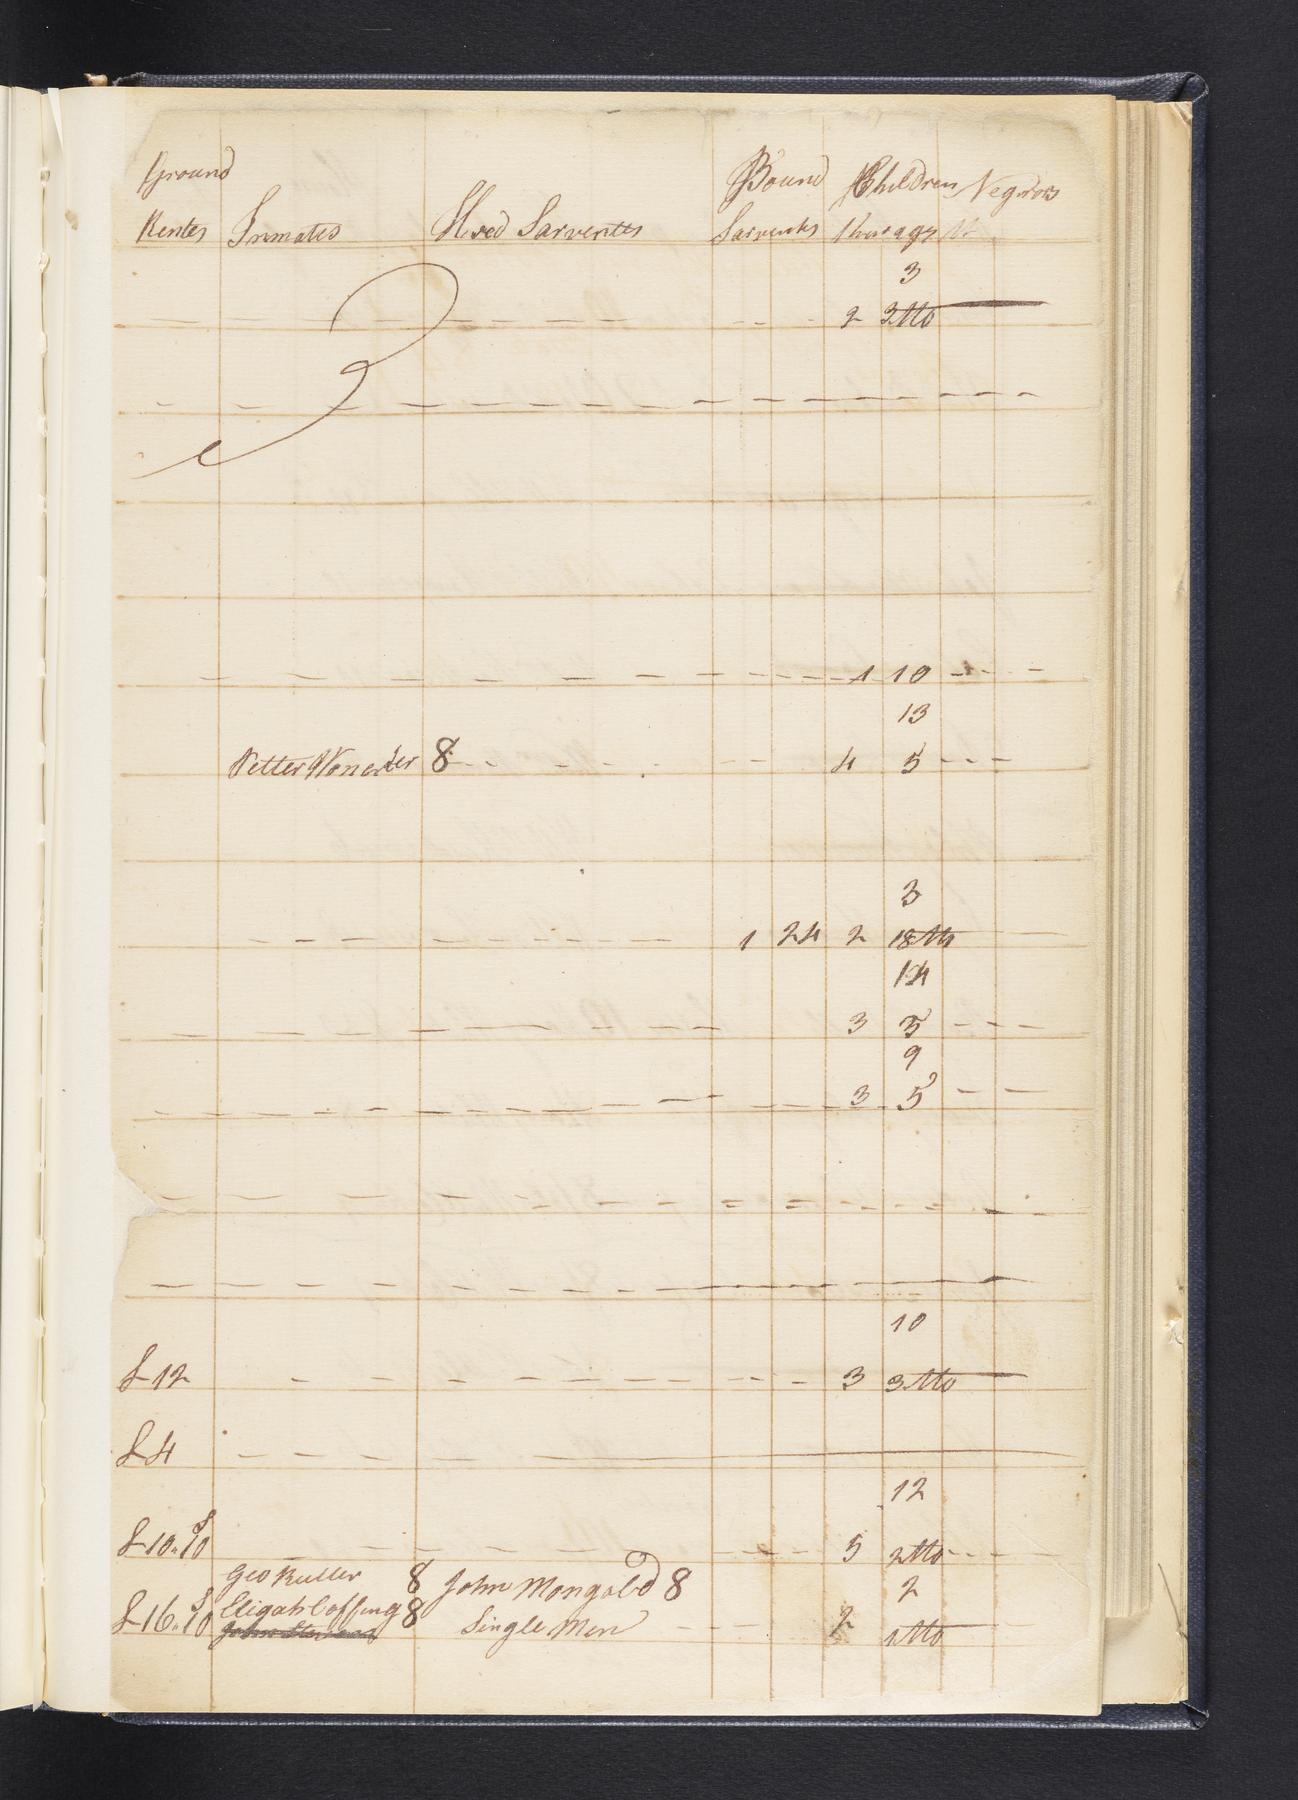 Ground Bound Children Negros
Rentes Inmates Hired Sarventes Sarvents
3
2 3 Mo
1 10
13
Petter 8 4 5
3
1 24 2 18 Mo
14
3 5
9
3 5
10
£12 3 3 Mo
£4
12
£10..10 5 2 Mo
Geo Ruller 8 John Mongold 8 2
£16..10 Eligah Coffing 8 Single Men 2 1 Mo